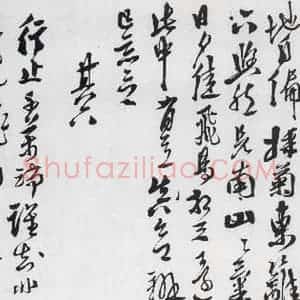 地自偏採菊東籬
下悠然見南山〻氣
日夕佳飛鳥相与還
此中有真意欲辯
已忘言
其六
行止千萬端誰知非
Shufaziliao.com